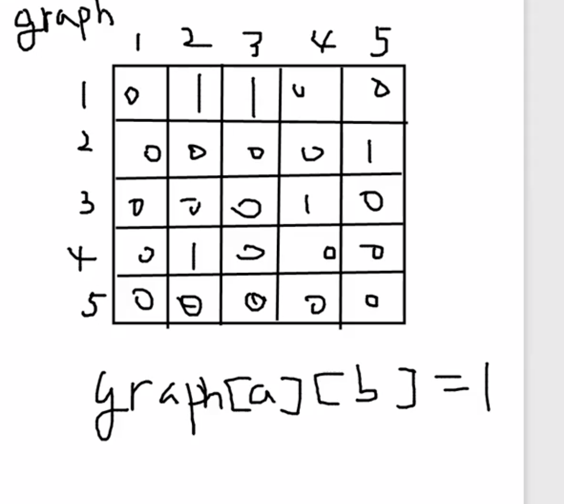 graph
1 2 3 4 5
1 0 1 1 0 0
2 0 0 0 0 1
3 0 0 0 1 0
4 0 1 0 0 0
5 0 0 0 0 0
graph[a][b]=1